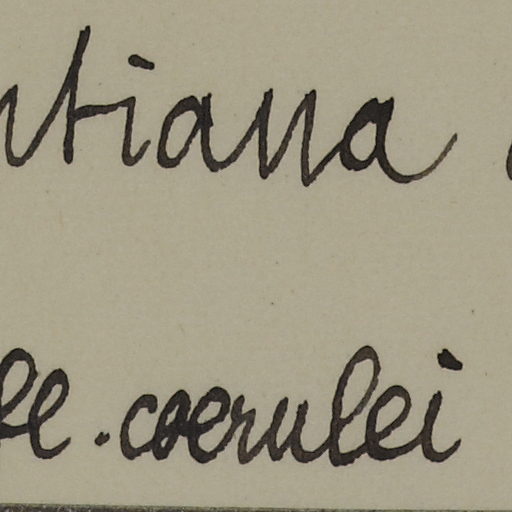 ntiana
le. coerulei